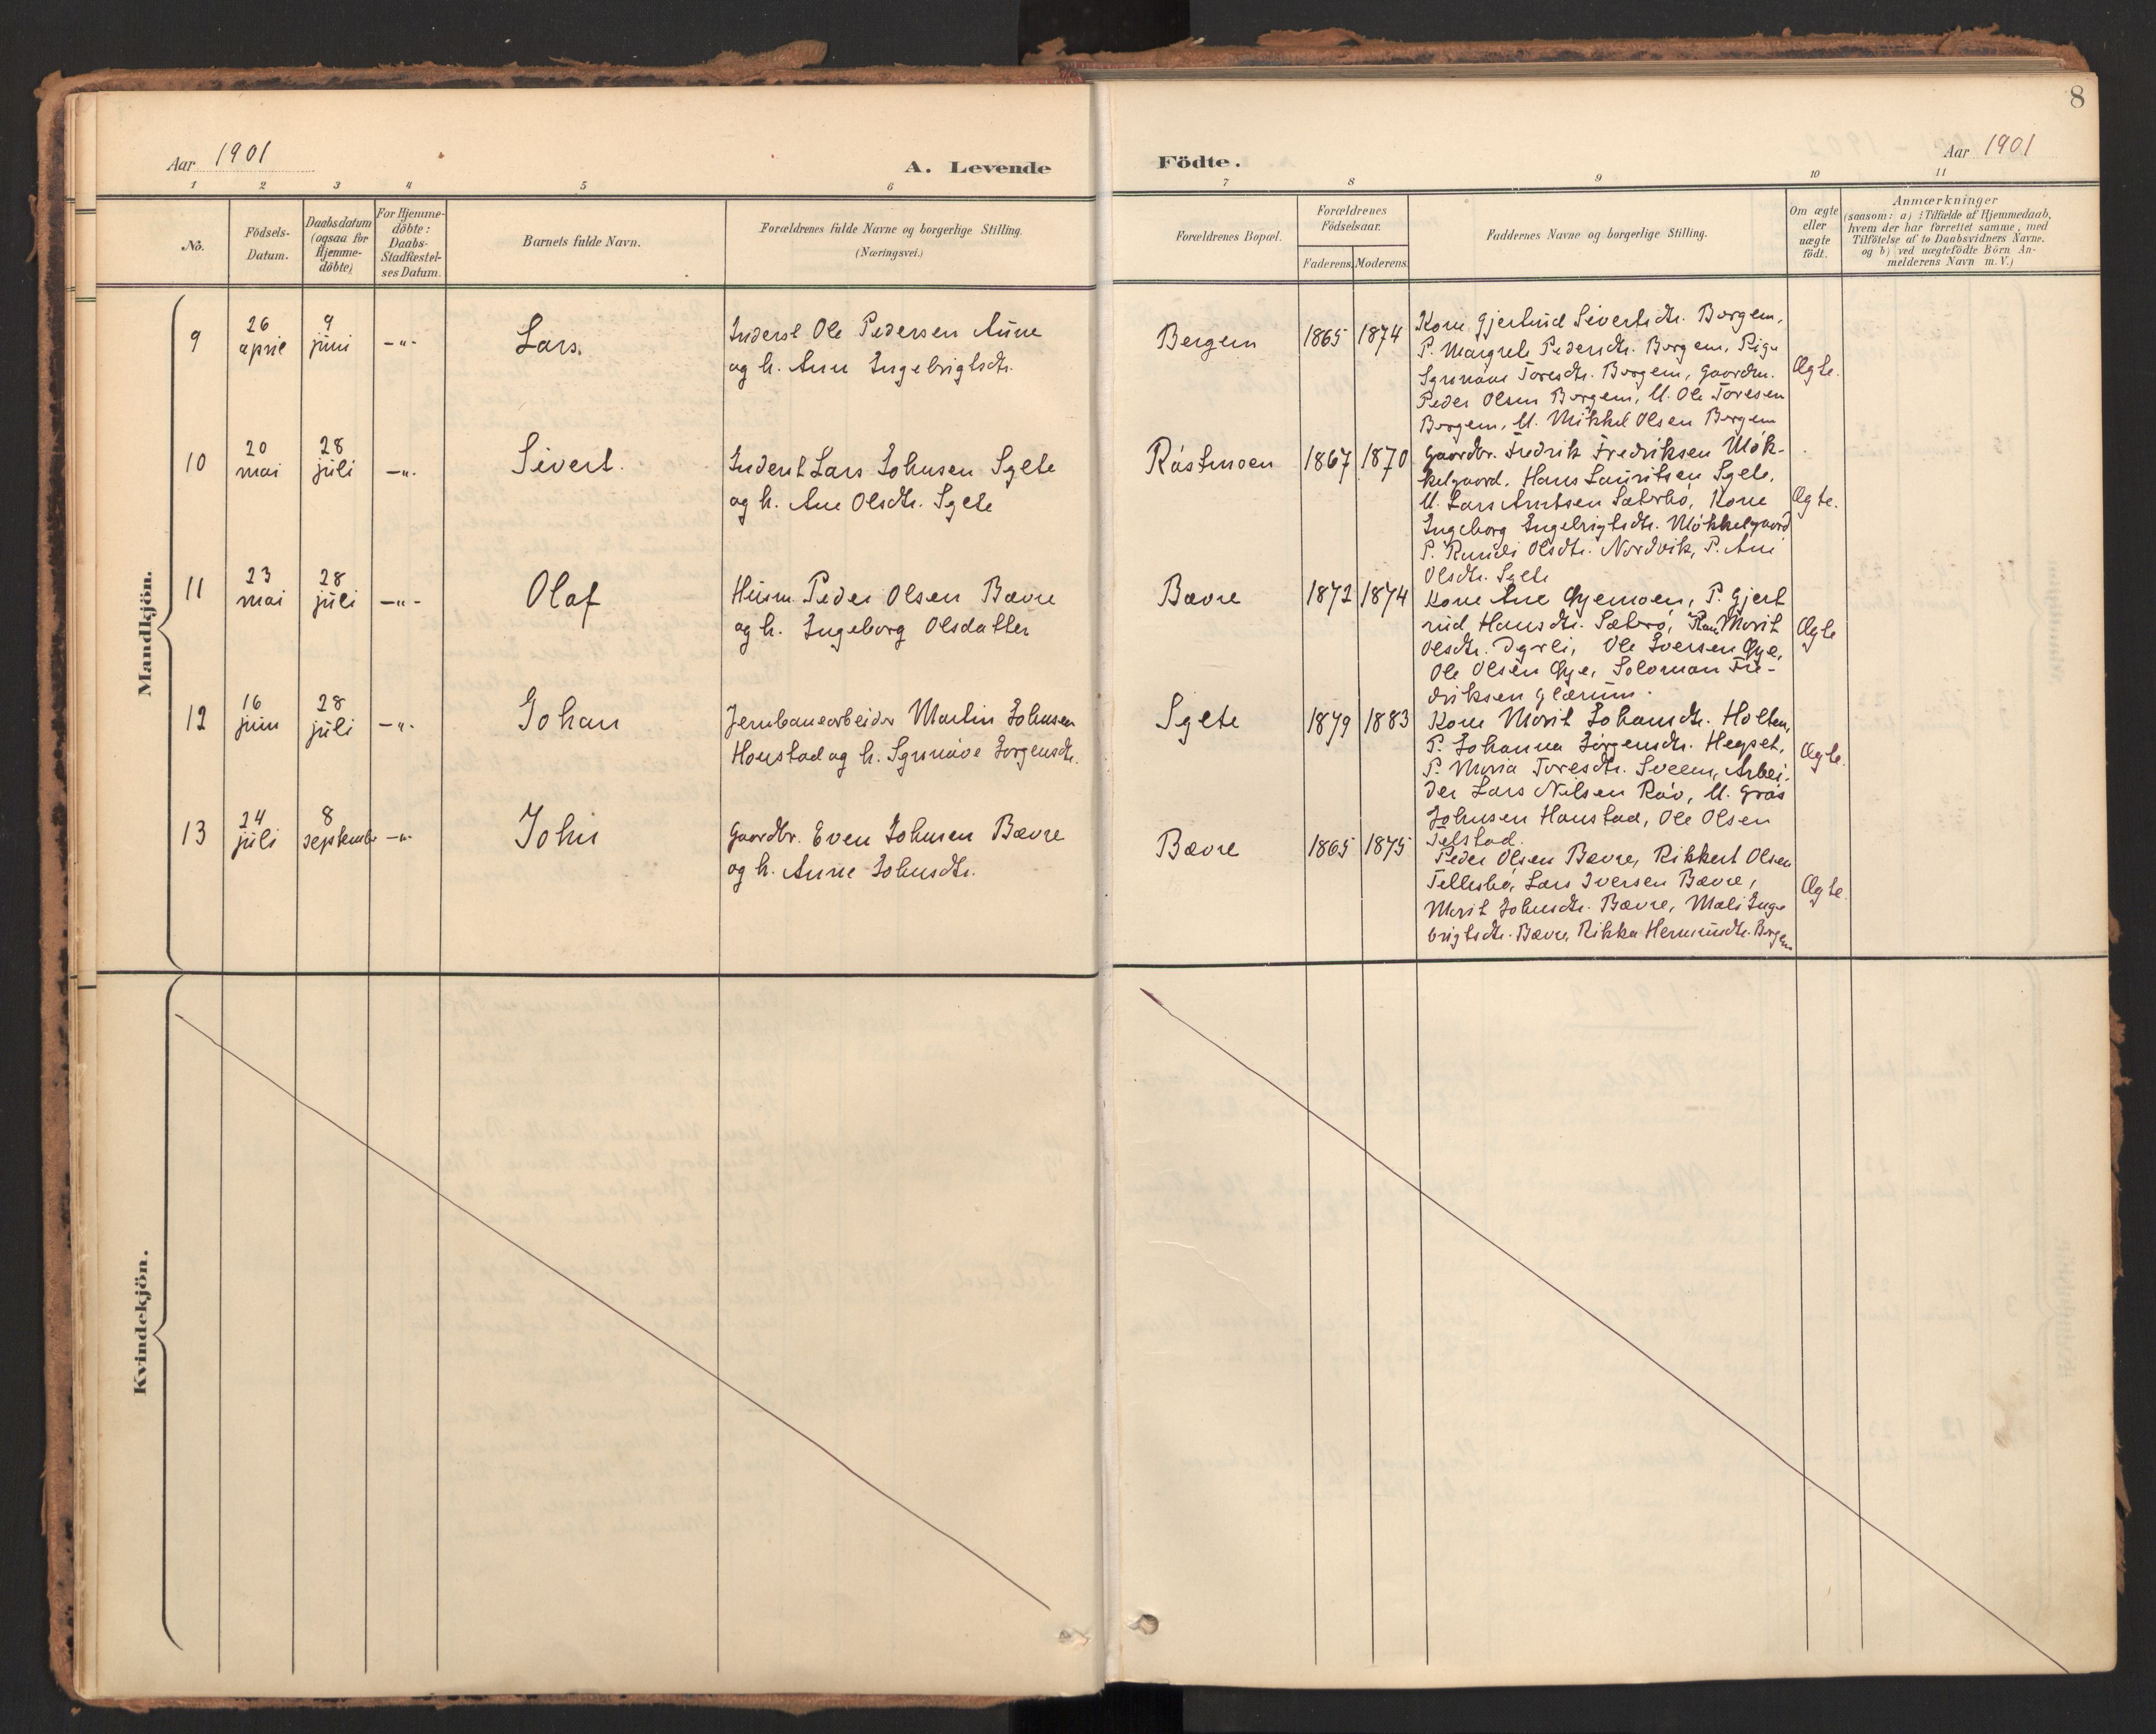 8
Aar 1901
A. Levende
Födte.
Aar 1901
1 2 3 4 5 6 7 8 9 10 11
No.
Födsels-
Datum.
Daabsdatum
(ogsaa for
Hjemme-
döbte)
For Hjemme-
döbte:
Daabs-
Stadfæstel-
ses Datum.
Barnets fulde Navn.
Forældrenes fulde Navne og borgerlige Stilling.
(Næringsvei.)
Forældrenes Bopæl.
Forældrenes
Födselsaar.
Faderens. Moderens.
Faddernes Navne og borgerlige Stilling.
Om ægte
eller
uægte
födt.
Anmærkninger
(saasom: a) i Tilfælde af Hjemmedaab,
hvem der har forrettet samme, med
Tilföielse af to Daabsvidners Navne,
og b) ved uægtefödte Börn An-
melderens Navn m. V.)
Mandkjön.
9
26
april
9
juni
-"-
Lars.
Inderst Ole Pedersen Aune
og h. Ane Ingebrigtsdtr.
Bergem
1865
1874
Kone Gjertrud Sivertsdtr. Bergem,
P. Margrete Pedersdtr. Bergem, Pige
Toresdtr. Bergem, Gaardm.
Peder Olsen Bergem, U. Ole Toresen
Bergem, U. Mikkel Olsen Bergem
Ægte.
10
20
mai
28
juli
-"-
Sivert.
Inderst Lars Johnsen Sæte
og h. Ane Olsdtr.
1867
1870
Gaardbr. Fredrik Fredriksen Møk-
kelgaard, Hans Lauritsen
U. Lars Arntsen Sæterbø, Kone
Ingeborg Ingebrigtsdtr. Møkkelgaard
P. Olsdtr. Nordvik, P. Ane
Olsdtr.
Ægte.
11
23
mai
28
juli
-"-
Olaf
Husm. Peder Olsen Bævre
og h. Ingeborg Olsdatter
Bævre
1872
1874
Kone Ane Øyemoen, P. Gjert
rud Hansdtr. Marit
Olsdtr. Ole Iversen Øye,
Ole Olsen Øye, Solomon Fre-
driksen Glærum.
Ægte
12
16
juni
28
juli
-"-
Johan
Jernbanearbeider Martin Johnsen
Honstad og h. Synnøve Jørgensdtr.
1879
1883
Kone Marit Johansdtr. Holten,
P. Johanna Jørgensdtr.
P. Maria Toresdtr. Sveen, Arbei-
der Lars Nilsen Røv, U.
Johnsen Honstad, Ole Olsen
Telstad.
Ægte.
13
24
juli
8
september
-"-
John
Gaardbr. Even Johnsen Bævre
og h. Anne Johnsdtr.
Bævre
1865
1875
Peder Olsen Bævre, Rikkert Olsen
Tellesbø, Lars Iversen Bævre,
Marit Johnsdtr. Bævre, Mali Inge
brigtsdtr. Bævre, Rikka Bergem
Ægte.
Kvindekjön.